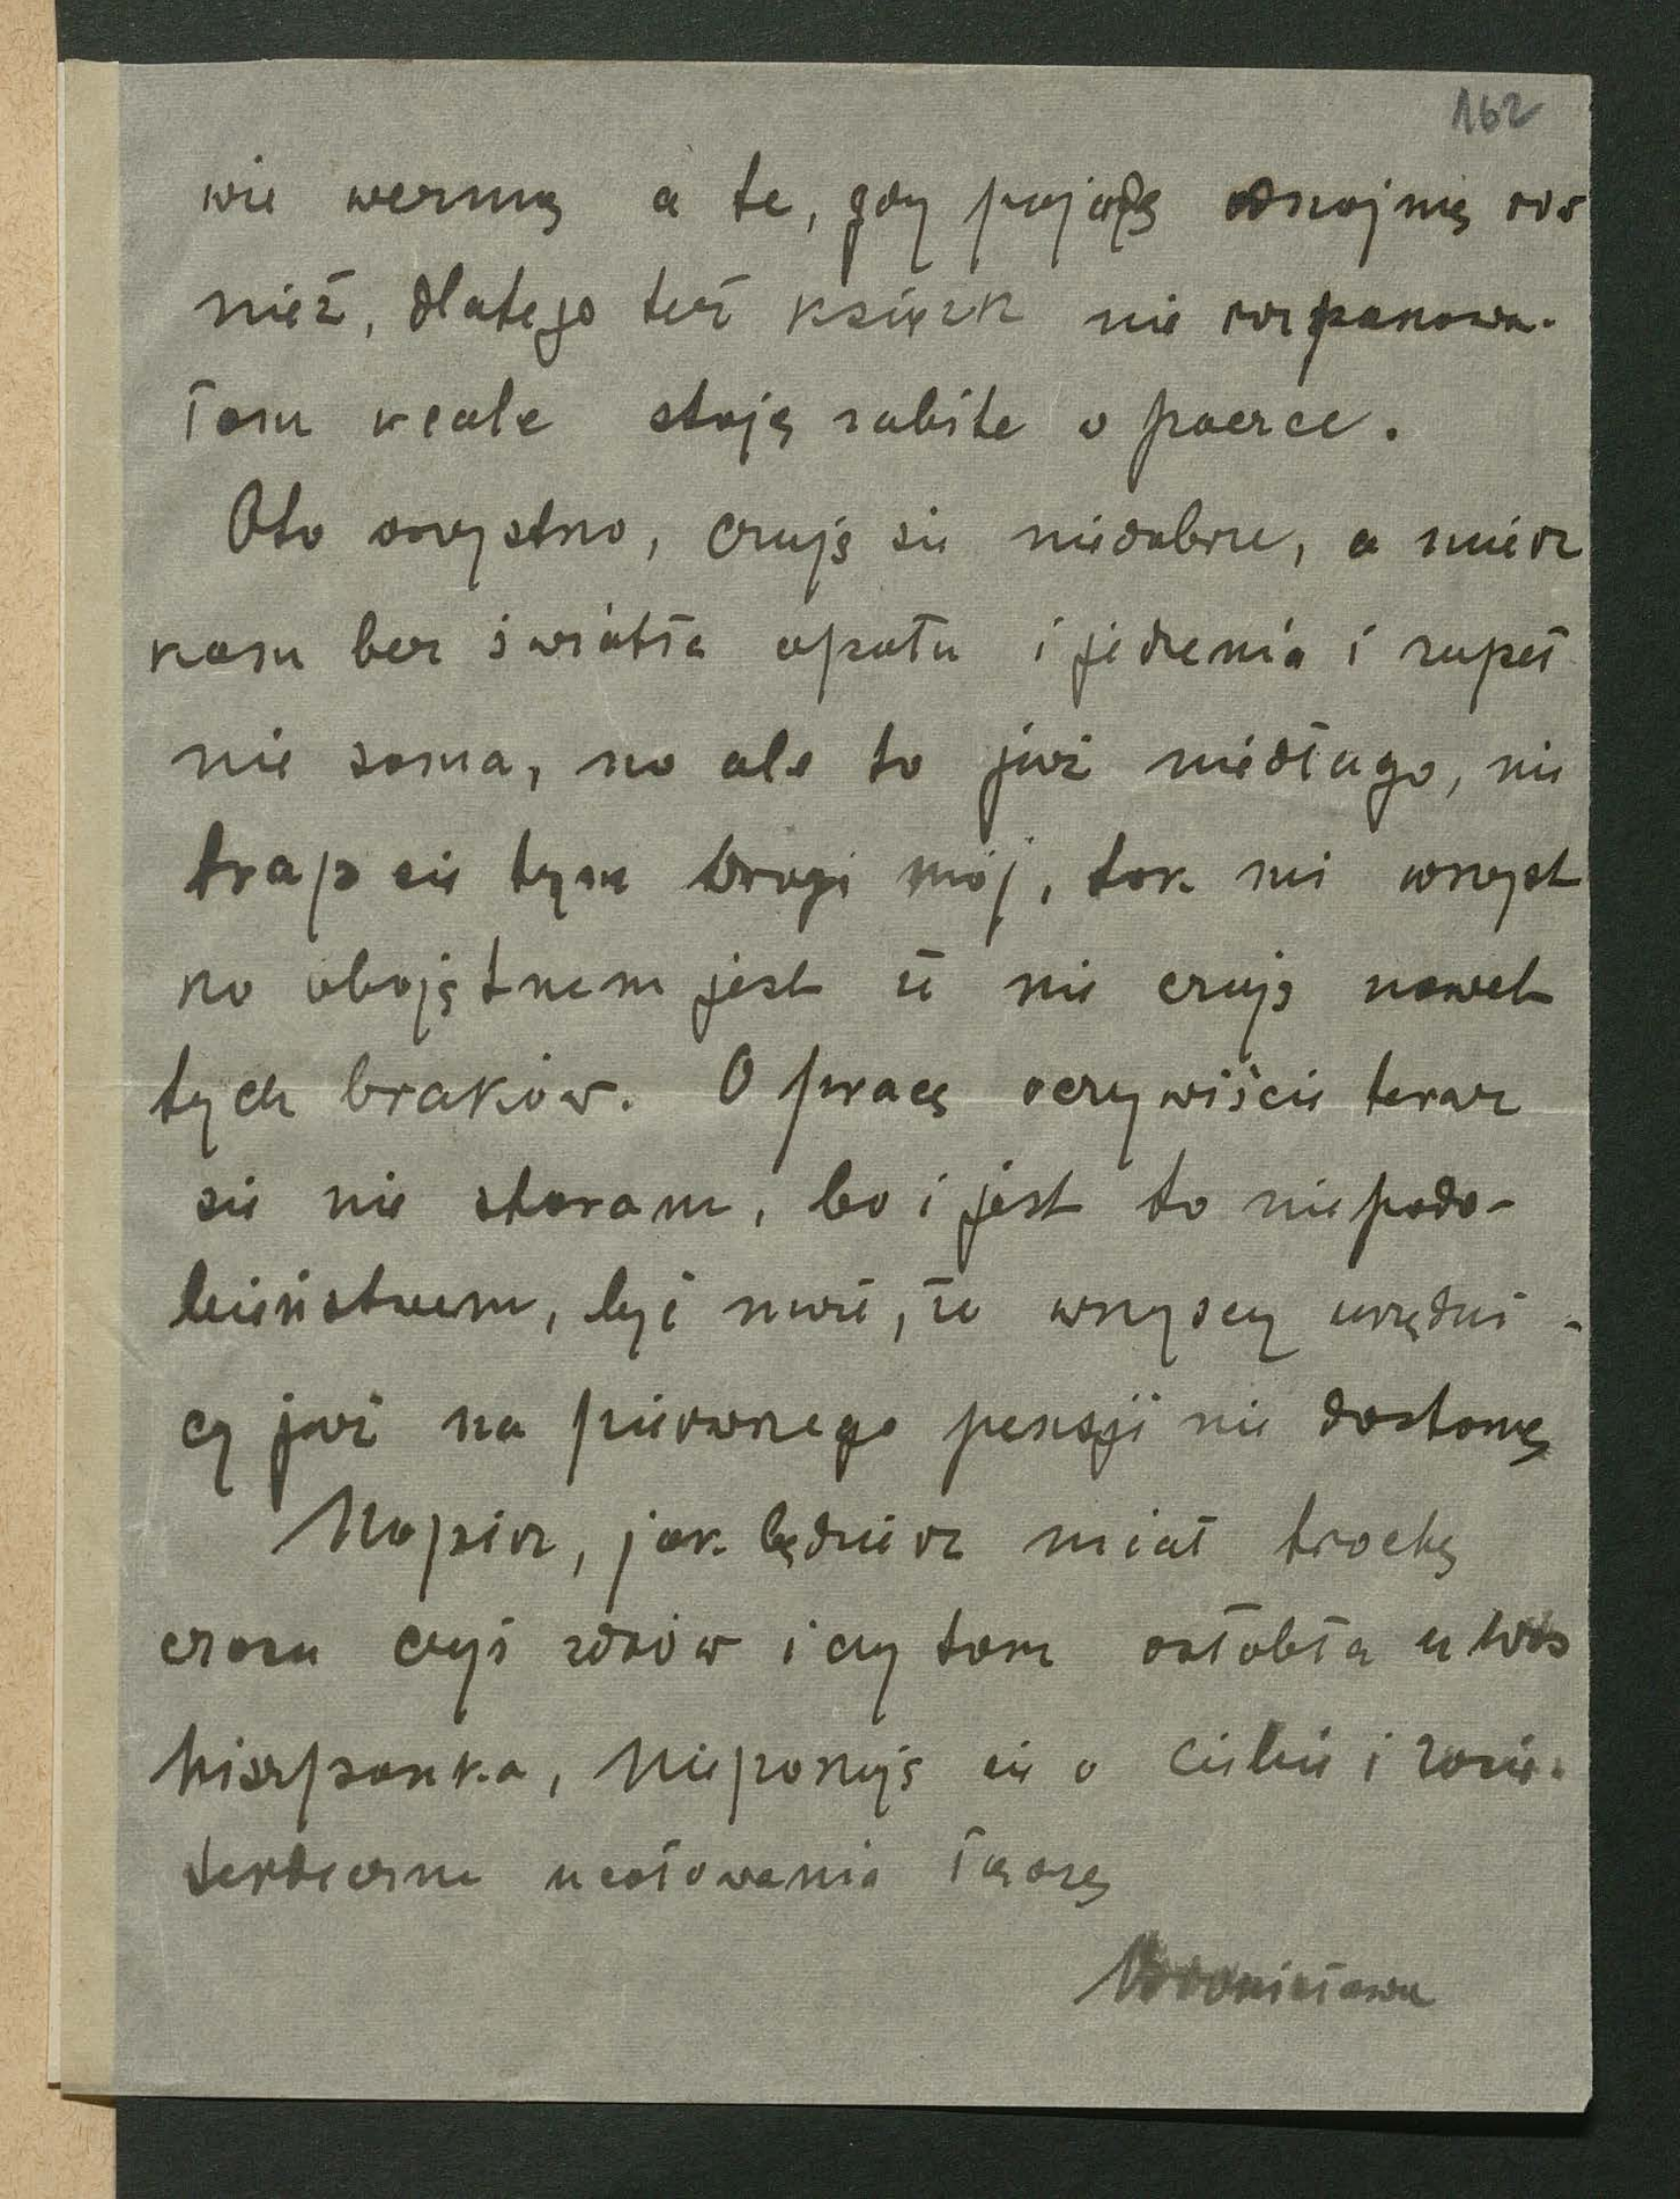 162
wie wezmą a te, gdy pojadę odnajmię rów
nież, dlatego też książk nie rozpakowa-
łam wcale stoją zabite w paczce.
Oto wszystko, czuję sie niedobrze, a miesz
kam bez światła opału i jedzenia i zupeł
nie sama, no ale to już niedługo, nie
trap sie tym drogi mój, tak mi wszyst
ko obojętnem jest że nie czuję nawet
tych braków. O pracę oczywiście teraz
sie nie staram, bo i jest to niepodo-
bieństwem, być może, że wszyscy urzędni-
cy już na pierwszego pensji nie dostaną
Napisz, jak będziesz miał trochę
czasu czyś zdrów i czy tam osłabła u Was
hiszpanka, Niepokoję sie o Ciebie i Zosie.
Serdeczne ucałowania łączę
Bronisława